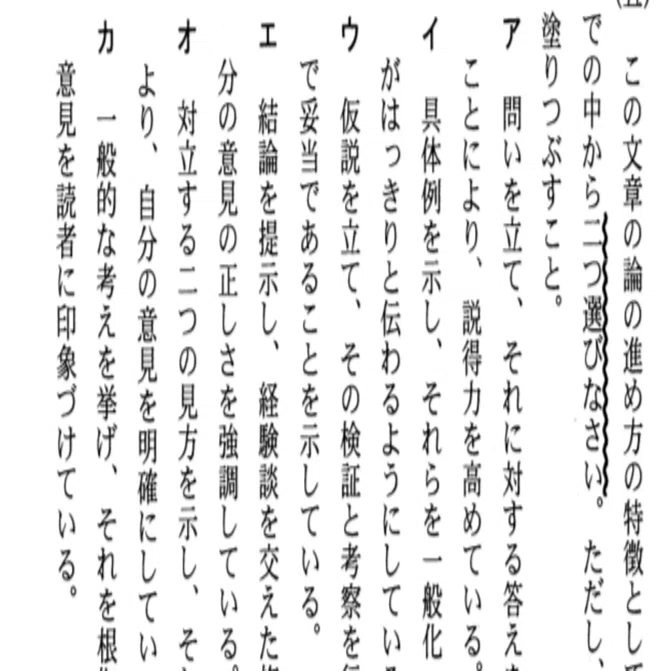 この文章の論の進め方の特徴とし
での中から二つ選びなさい。ただし、
塗りつぶすこと。
ア 問いを立て、それに対する答え
ことにより、説得力を高めている。
イ 具体例を示し、それらを一般化
がはっきりと伝わるようにしてい
ウ 仮説を立て、その検証と考察を
で妥当であることを示している。
エ 結論を提示し、経験談を交えた
分の意見の正しさを強調している。
オ 対立する二つの見方を示し、そ
より、自分の意見を明確にしてい
カ 一般的な考えを挙げ、それを根
意見を読者に印象づけている。